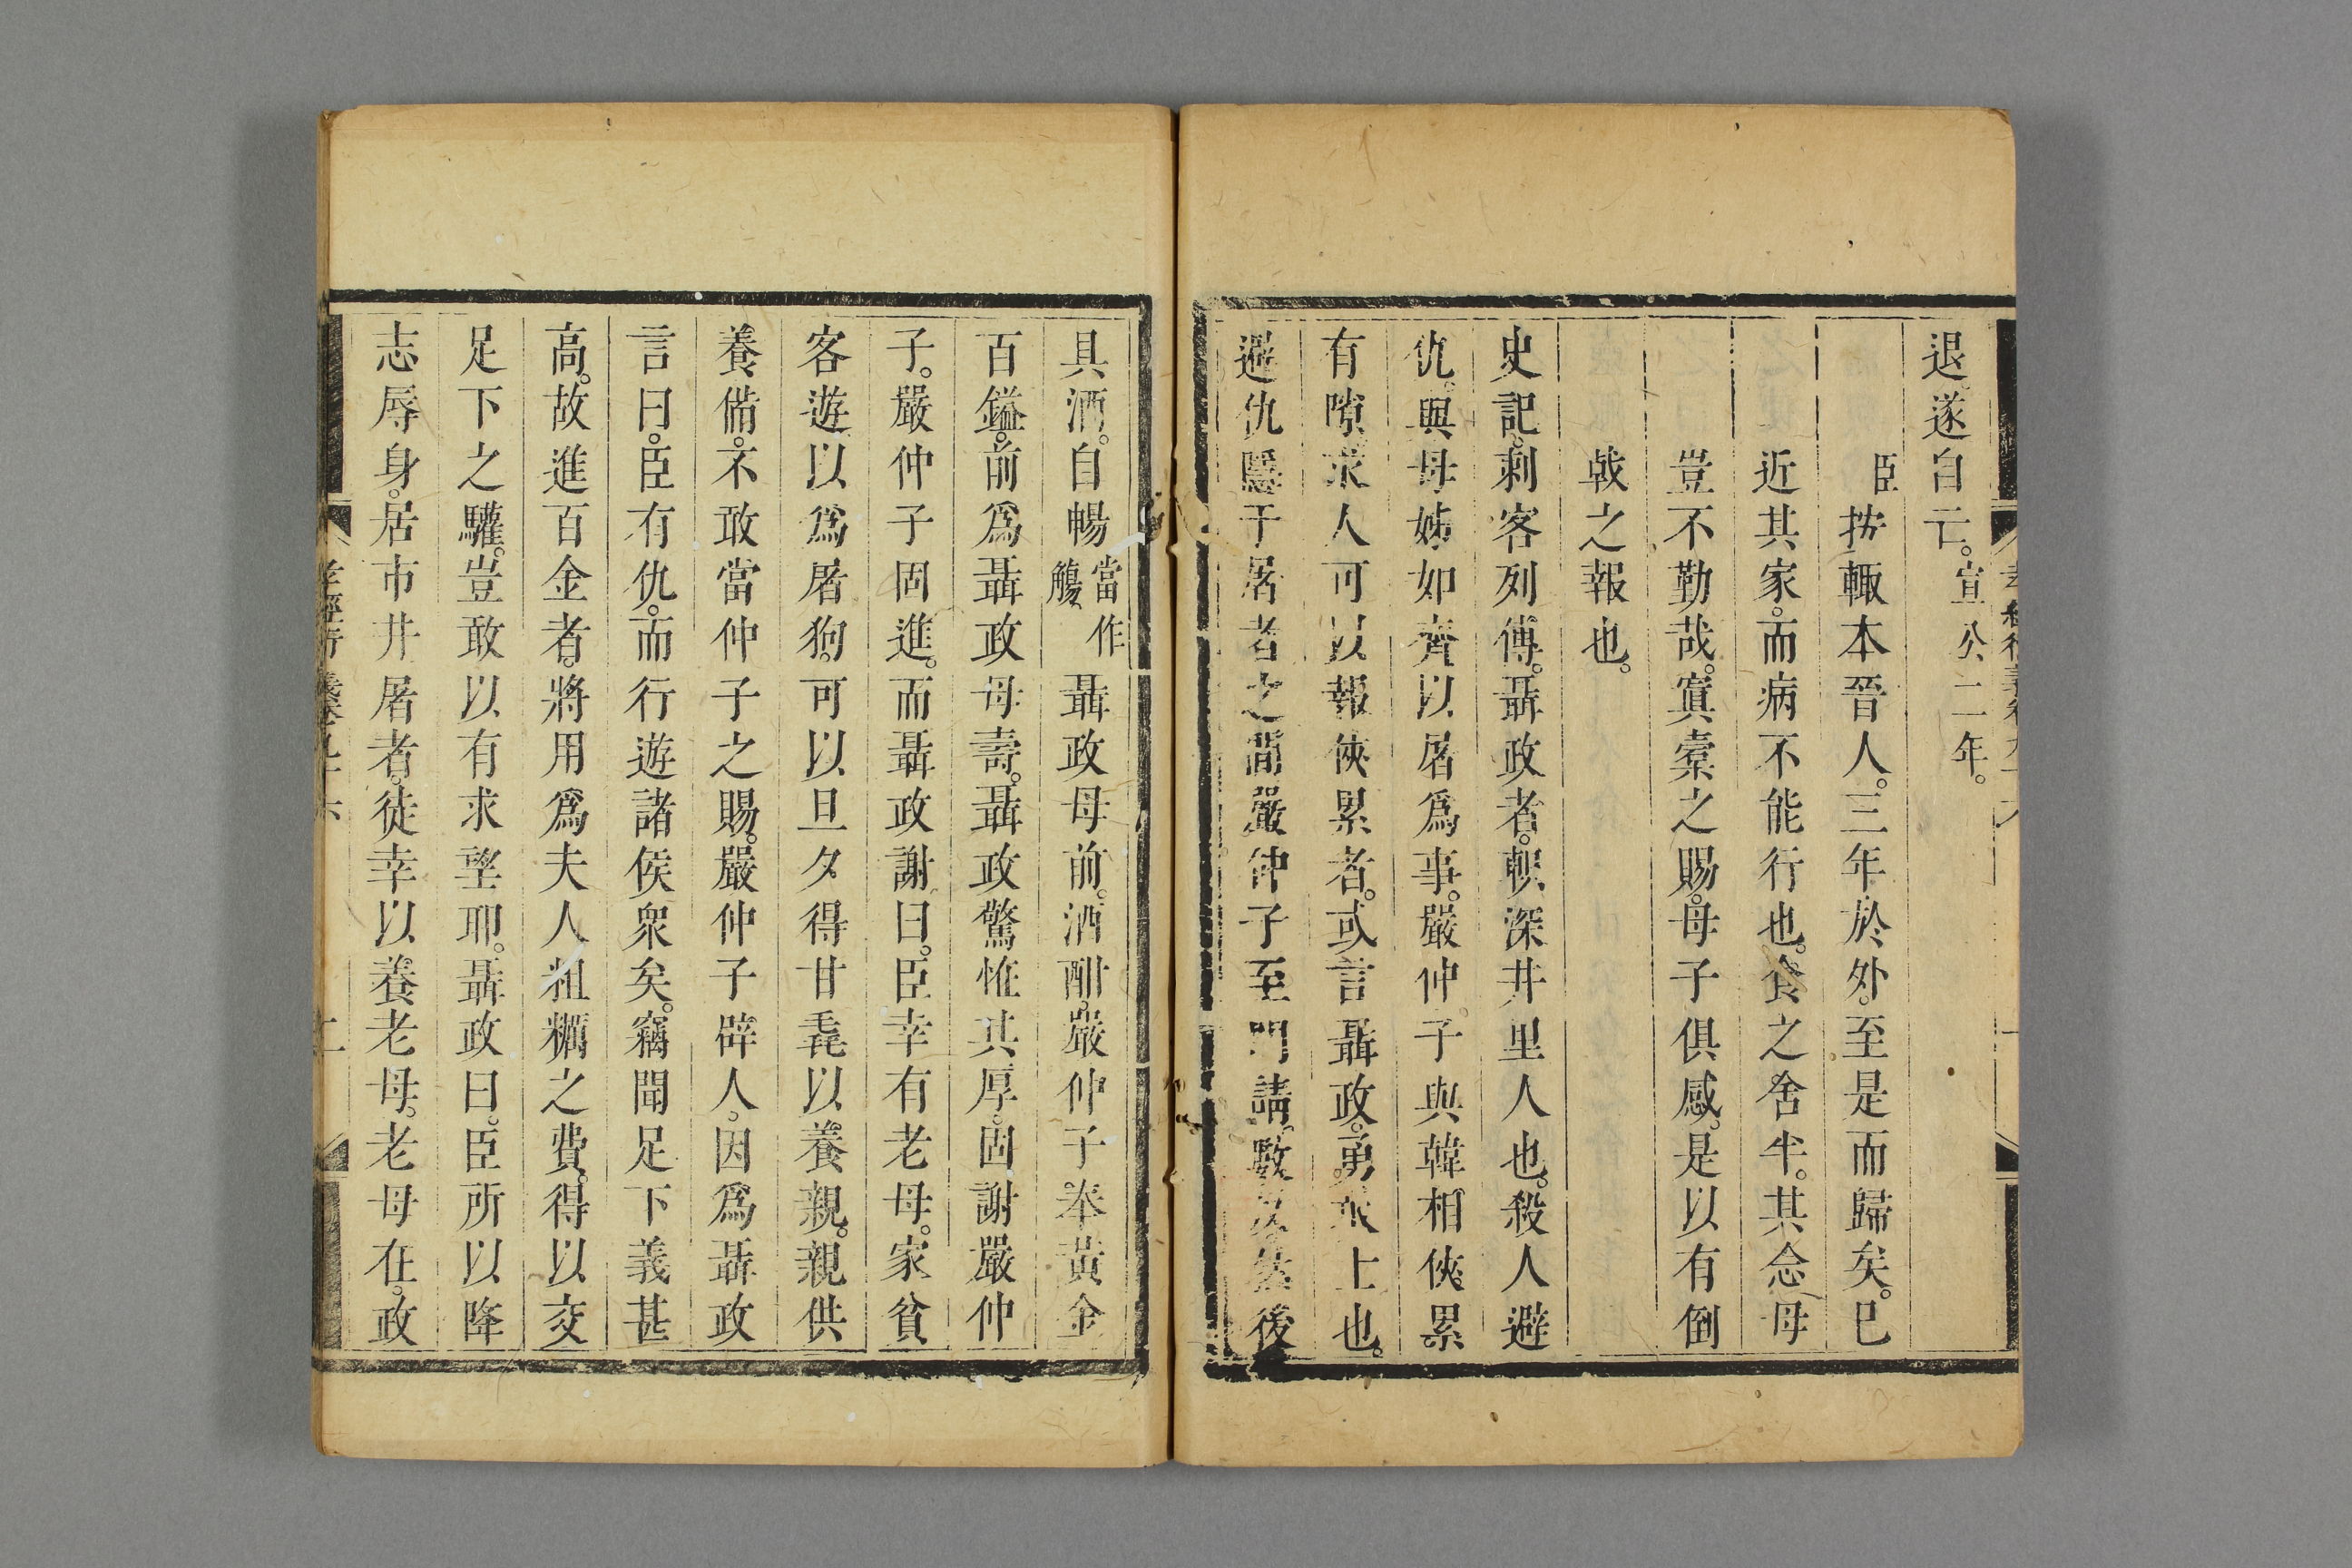 退遂自亡。宣公二年。
臣按輙本晉人。三年於外。至是而歸矣。已
近其家。而病不能行也。食之舍半。其念母
豈不勤哉。寘橐之賜。母子俱感。是以有倒
戟之報也。
史記。刺客列傳。聶政者。軹深井里人也。殺人避
仇。與母姊如齊以屠爲事。嚴仲子與韓相俠累
有隙。求人可以報俠累者。或言聶政。勇敢士也。
避仇隱于屠者之間嚴仲子至門請。數反然後
具酒。自暢當作觴聶政母前。酒酣。嚴仲子奉黃金
百鎰。前爲聶政母壽。聶政驚恠其厚。固謝嚴仲
子。嚴仲子固進。而聶政謝曰。臣幸有老母。家貧
客遊以爲屠狗。可以旦夕得甘毳以養親。親供
養備。不敢當仲子之賜。嚴仲子辟人。因爲聶政
言曰。臣有仇。而行遊諸侯衆矣。竊聞足下義甚
高。故進百金者。將用爲夫人粗糲之費。得以交
足下之驩。豈敢以有求望耶。聶政曰。臣所以降
志辱身。居市井屠者。徒幸以養老母。老母在。政
孝經衍義卷九十六
二